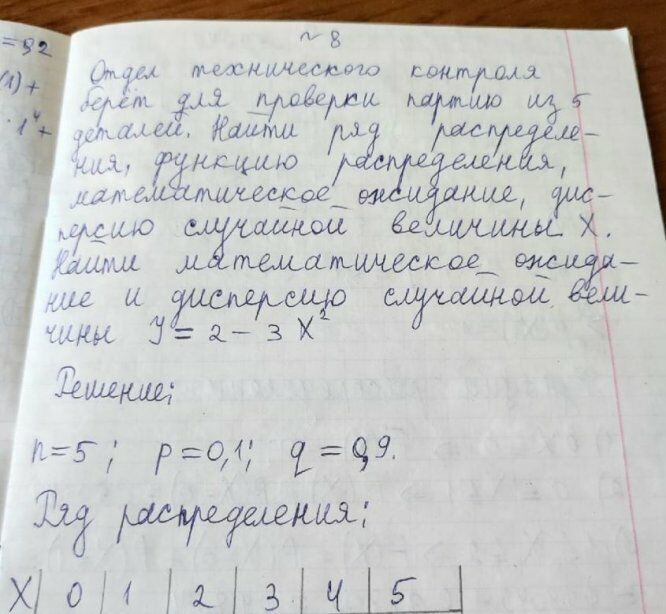 =92
(1) +
· 1⁴ +
~ 8
Отдел технического контроля
берёт для проверки партию из 5
деталей. Найти ряд распределе-
ния, функцию распределения,
математическое ожидание, дис-
персию случайной величины X.
Найти математическое ожида-
ние и дисперсию случайной вели-
чины Y = 2 - 3 X²
Решение:
n=5; p=0,1; q=0,9.
Ряд распределения:
X | 0 | 1 | 2 | 3 | 4 | 5